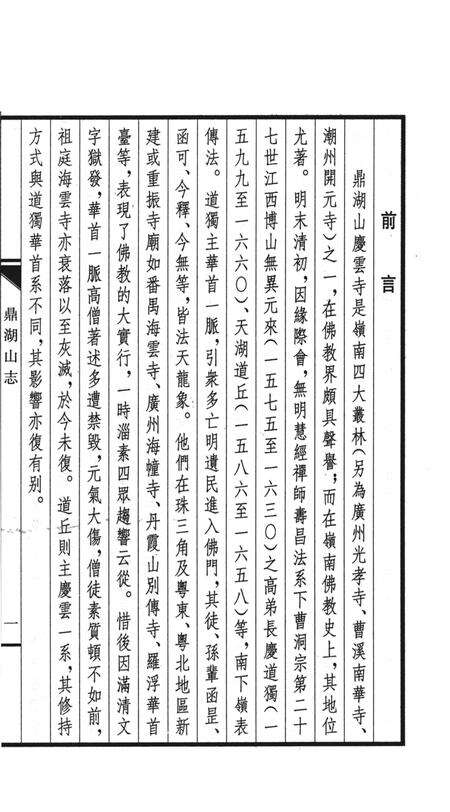 前言
鼎湖山慶雲寺是嶺南四大叢林(另為廣州光孝寺、曹溪南華寺、
潮州開元寺)之一,在佛教界頗具聲譽;而在嶺南佛教史上,其地位
尤著。明末清初,因緣際會,無明慧經禪師壽昌法系下曹洞宗第二十
七世江西博山無異元來(一五七五至一六三〇)之高弟長慶道獨(一
五九九至一六六〇)、天湖道丘(一五八六至一六五八)等,南下嶺表
傳法。道獨主華首一脈,引衆多亡明遺民進入佛門,其徒、孫輩函昰、
函可、今釋、今無等,皆法天龍象。他們在珠三角及粵東、粵北地區新
建或重振寺廟如番禺海雲寺、廣州海幢寺、丹霞山別傳寺、羅浮華首
臺等,表現了佛教的大實行,一時淄素四眾趨響云從。惜後因滿清文
字獄發,華首一脈高僧著述多遭禁毀,元氣大傷,僧徒素質頓不如前,
祖庭海雲寺亦衰落以至灰滅,於今未復。道丘則主慶雲一系,其修持
方式與道獨華首系不同,其影響亦復有別。
鼎湖山志
一